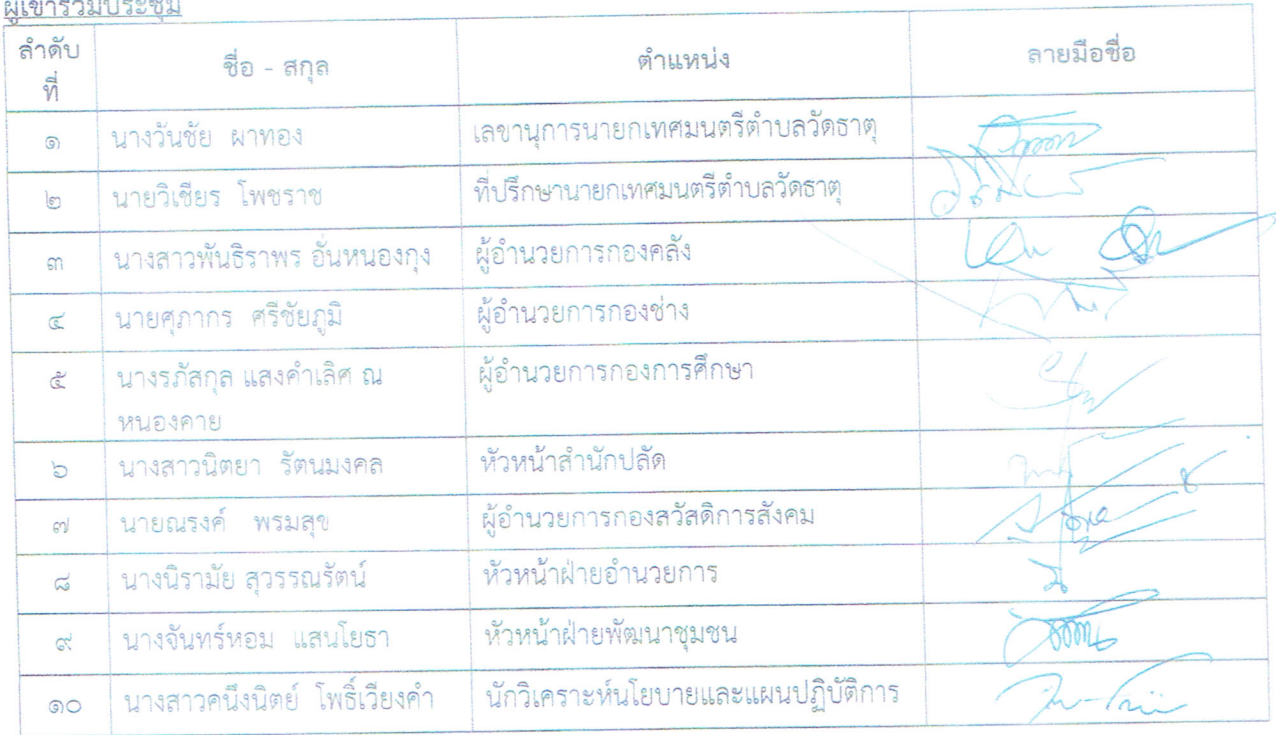 ผู้เข้าร่วมประชุม
ลำดับที่ ชื่อ - สกุล ตำแหน่ง ลายมือชื่อ
๑ นางวันชัย ผาทอง เลขานุการนายกเทศมนตรีตำบลวัดธาตุ
๒ นายวิเชียร โพชราช ที่ปรึกษานายกเทศมนตรีตำบลวัดธาตุ
๓ นางสาวพันธิราพร อั่นหนองกุง ผู้อำนวยการกองคลัง
๔ นายศุภากร ศรีชัยภูมิ ผู้อำนวยการกองช่าง
๕ นางรภัสกุล แสงคำเลิศ ณ ผู้อำนวยการกองการศึกษา
หนองคาย
๖ นางสาวนิตยา รัตนมงคล หัวหน้าสำนักปลัด
๗ นายณรงค์ พรมสุข ผู้อำนวยการกองสวัสดิการสังคม
๘ นางนิรามัย สุวรรณรัตน์ หัวหน้าฝ่ายอำนวยการ
๙ นางจันทร์หอม แสนโยธา หัวหน้าฝ่ายพัฒนาชุมชน
๑๐ นางสาวคนึงนิตย์ โพธิ์เวียงคำ นักวิเคราะห์นโยบายและแผนปฏิบัติการ